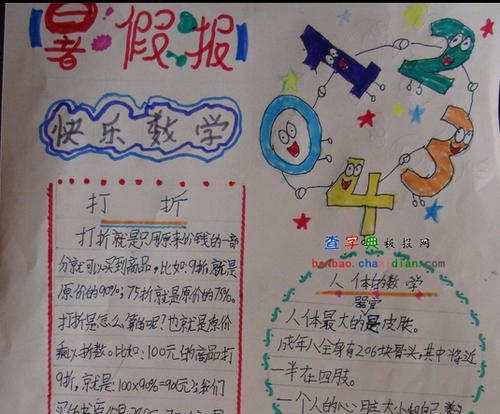 暑假报
快乐数学
打 折
打折就是只用原来价钱的一部
分就可以买到商品,比如:9折就是
原价的90%;75折就是原价的75%。
打折是怎么算的呢?也就是原价
乘以折数。比如:100元的商品打
9折,就是:100×90%=90元
我们
1
2
3
4
0
查字典板报网
banbao.chazidian.com
人体的数学
器官
人体最大的是皮肤。
成年人全身有206块骨头,其中将近
一半在四肢。
一个人的心脏大小和自己